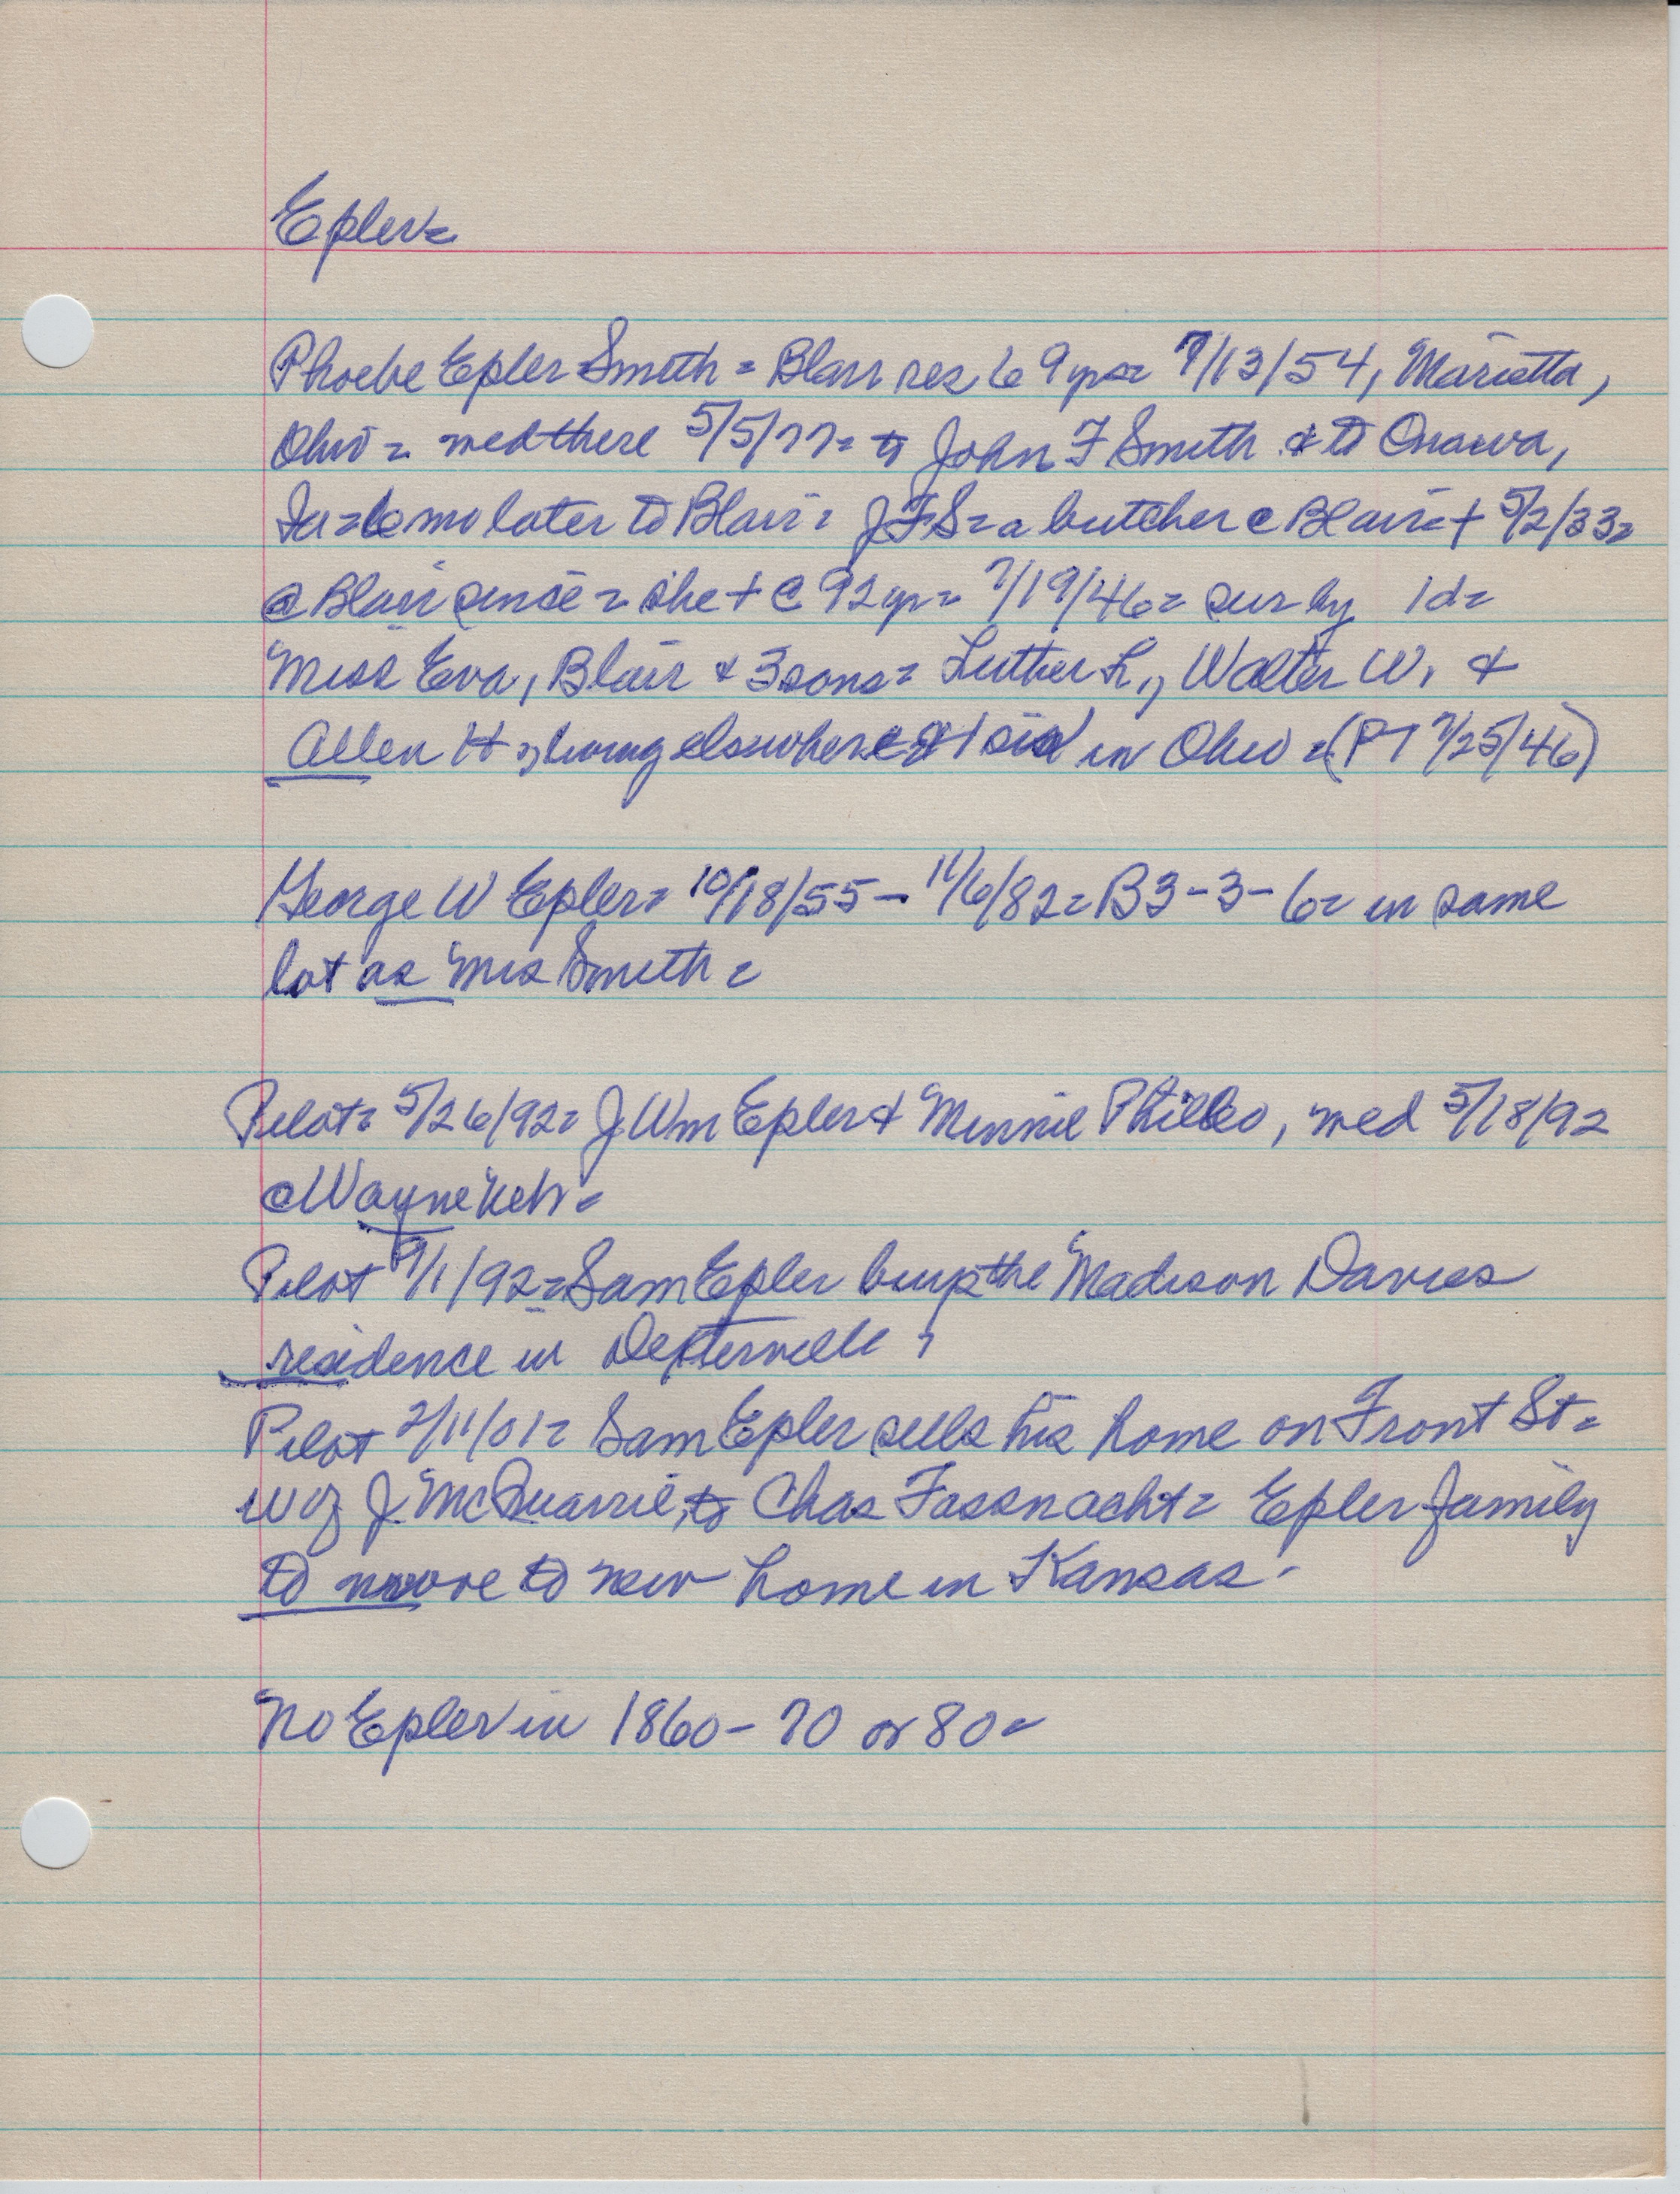 Epler=
Phoebe Epler Smith = Blair res 69 yrs= 7/13/54, Marietta,
Ohio = med there 5/5/77= to John F Smith & to Onawa,
Ia=6 mo later to Blair= JFS= a butcher @ Blair=+ 5/2/33=
@ Blair since = she + @ 92 yr= 7/19/46= sur by 1d=
Miss Eva, Blair & 3 sons= Luther L., Walter W. &
Allen H=, living elsewhere= 1 sis in Ohio =(PT 7/25/46)
George W Epler= 10/18/55 – 11/6/82= B3-3-6= in same
lot as Mrs Smith=
Pilot= 5/26/92= J. Wm Epler & Minnie Philleo, med 5/18/92
@ Wayne Neb=
Pilot 9/1/92= Sam Epler buys the Madison Davies
residence in Dexterville
Pilot 2/11/01= Sam Epler sells his home on Front St=
W of J. McQuarrie, to Chas Fassnacht= Epler family
to move to new home in Kansas.
No Epler in 1860 – 70 or 80=